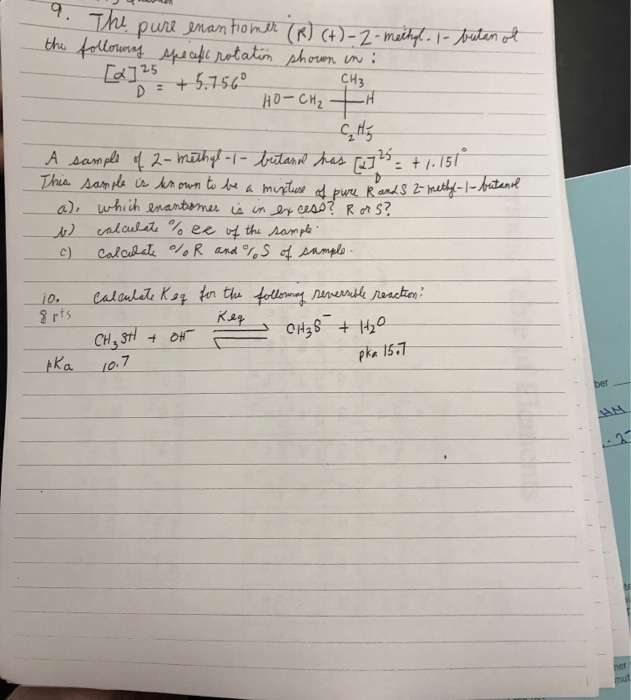 9. The pure enantiomer (R) (+)-2-methyl-1-butanol
the following specific rotation shown in :
[α]25 D = + 5.756°
CH3
HO-CH2 H
C2H5
A sample of 2-methyl-1-butanol has [α]25 D = + 1.151°
This sample is known to be a mixture of pure R and S 2-methyl-1-butanol
a), which enantiomer is in excess? R or S?
b) calculate % ee of the sample.
c) calculate % R and % S of sample.
10. calculate Keq for the following reversible reaction:
8 pts
Keq
CH3SH + OH- ⇌ CH3S- + H2O
pKa 10.7 pka 15.7
ber
HM
her
mut